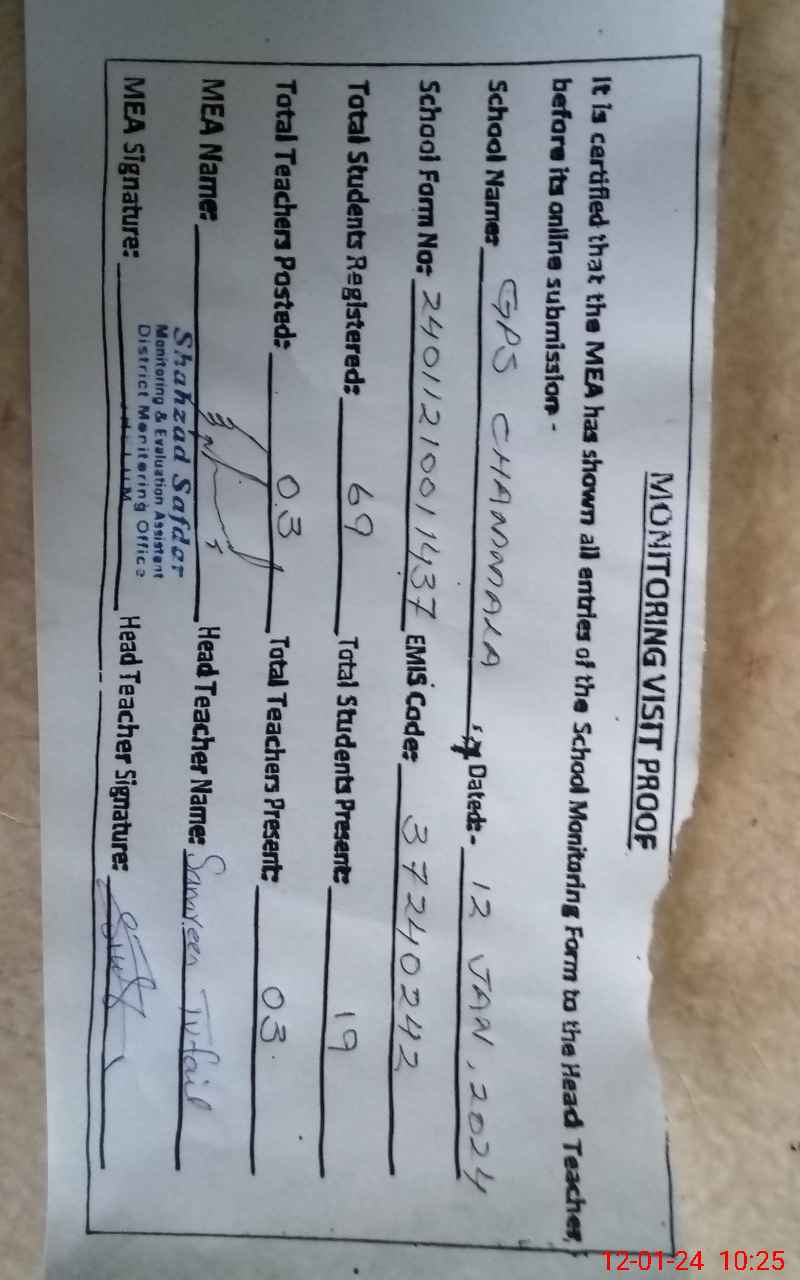 MONITORING VISIT PROOF
It is certified that the MEA has shown all entries of the School Monitoring Form to the Head Teacher,
before its online submission -
School Name: GPS CHAMMALA Dated:- 12 JAN, 2024
School Form No: 24011210011437 EMIS Code: 37240242
Total Students Registered: 69 Total Students Present: 19
Total Teachers Posted: 03 Total Teachers Present: 03
MEA Name: Head Teacher Name: Samreen Tufail
Shahzad Safdar
Monitoring & Evaluation Assistant
District Monitoring Office
MEA Signature: Head Teacher Signature:
12-01-24 10:25